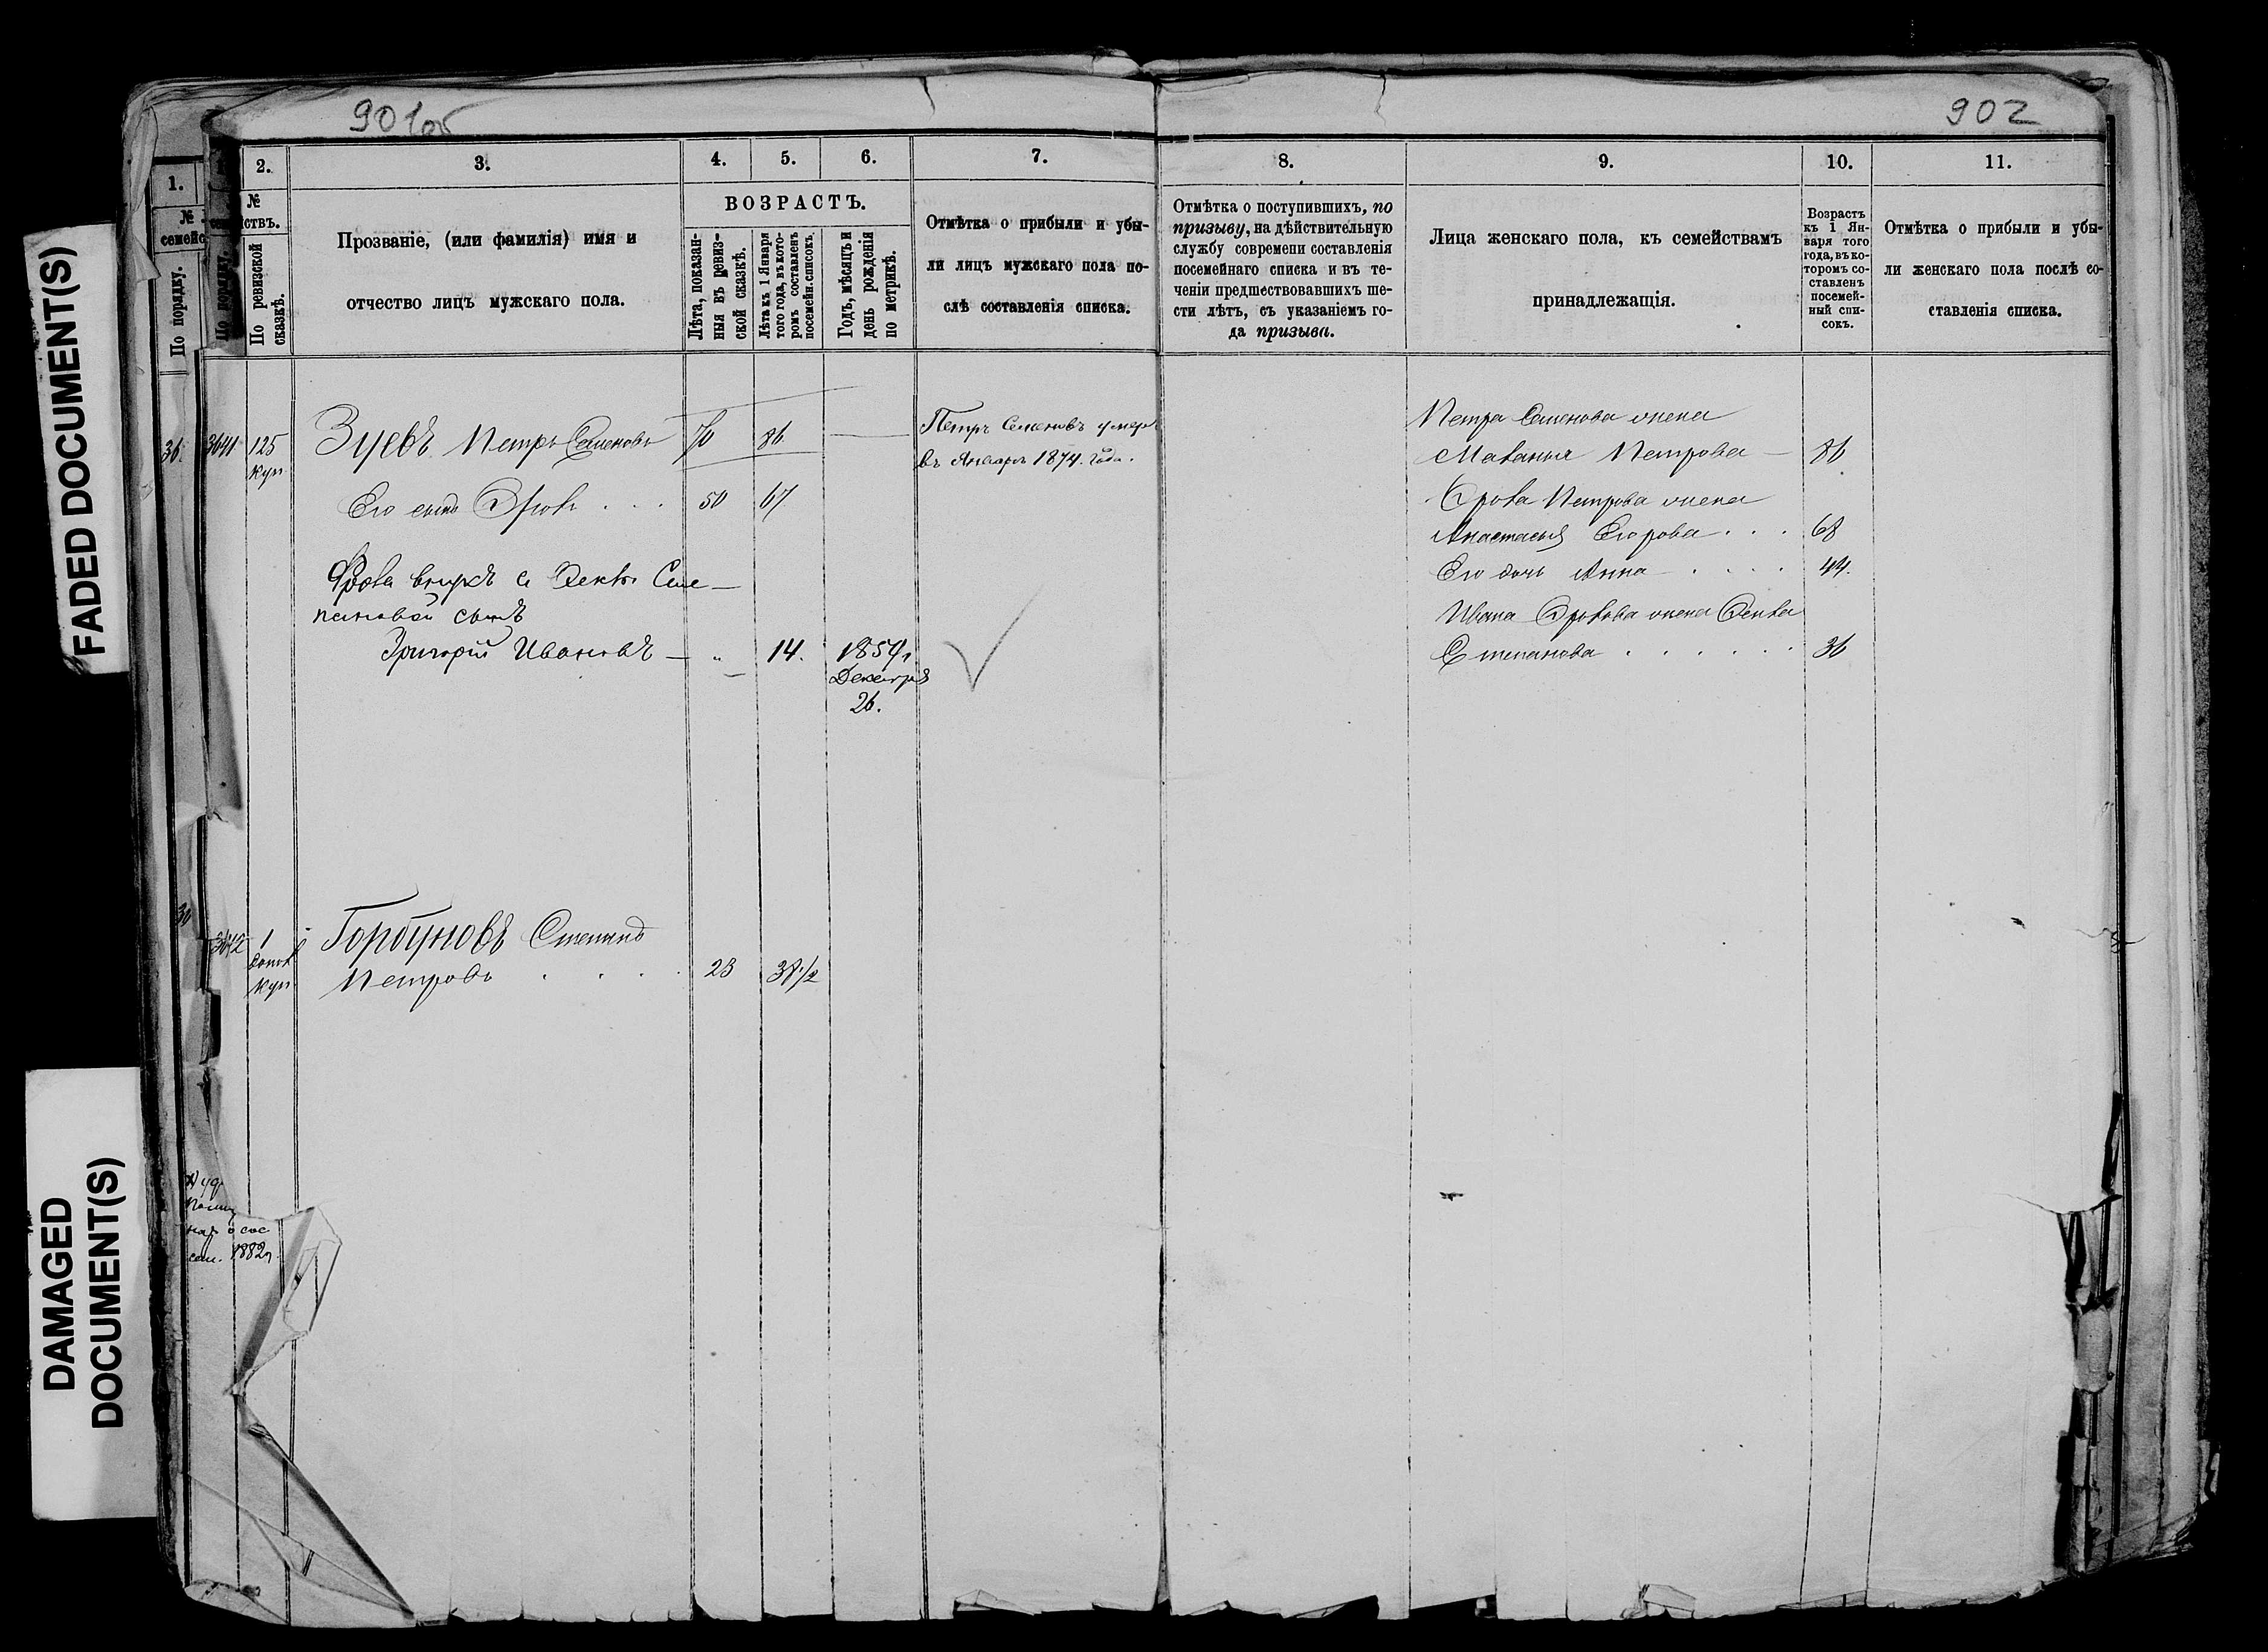 FADED DOCUMENT(S)
DAMAGED
DOCUMENT(S)
901об
902
1.
2.
3.
4.
5.
6.
7.
8.
9.
10.
11.
№
семейс
По порядку.
№
ствъ.
По порядку.
По ревизской
сказкѣ.
Прозваніе, (или фамилія) имя и
отчество лицъ мужскаго пола.
ВОЗРАСТЪ.
Лѣта, показан-
ныя въ ревиз-
ской сказкѣ.
Лѣта къ 1 Января
того года, въ кото-
ромъ составленъ
посемейн. списокъ.
Годъ, мѣсяцъ и
день рожденія
по метрикѣ.
Отмѣтка о прибыли и убы-
ли лицъ мужскаго пола по-
слѣ составленія списка.
Отмѣтка о поступившихъ, по
призыву, на дѣйствительную
службу современи составленія
посемейнаго списка и въ те-
ченіи предшествовавшихъ ше-
сти лѣтъ, съ указаніемъ го-
да призыва.
Лица женскаго пола, къ семействамъ
принадлежащія.
Возрастъ
къ 1 Ян-
варя того
года, въ ко-
торомъ со-
ставленъ
посемей-
ный спи-
сокъ.
Отмѣтка о прибыли и убы-
ли женскаго пола послѣ со-
ставленія списка.
36
3641
125
куп
Зуевъ Петръ Семеновъ 70 86
Петръ Семеновъ умеръ
въ Январѣ 1874 года.
Его сынъ 50 67
внукъ и Сте-
пановой сынъ
Григорій Ивановъ — " 14. 1859 г
Декабря
26.
Петра Семенова жена
Маланья Петрова — 86
Петрова жена
Анастасья Егорова . . . 68
Его дочь Анна . . . . 44.
Ивана жена
Степанова . . . . . . 36
3642
1
куп
Горбуновъ Степанъ
Петровъ . . . . 23 38 1/2
сем. 1882 г.